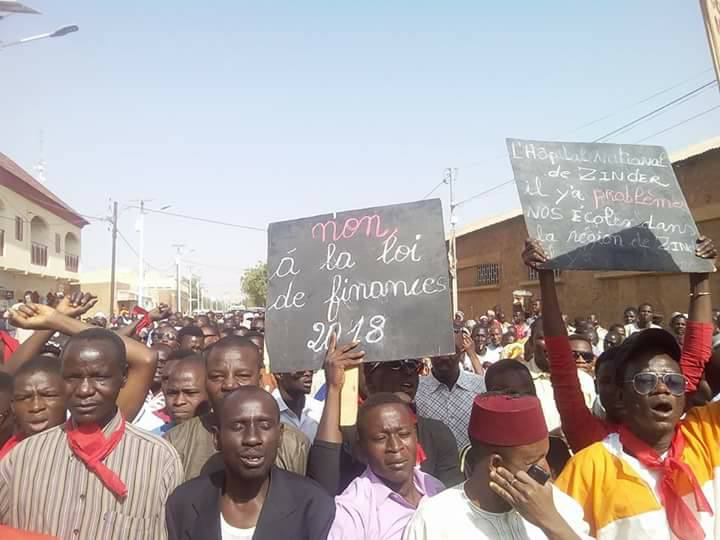 non
à la loi
de finances
2018
L'Hôpital National
de ZINDER
il y'a problème
NOS Écoles dans
la région de ZIN